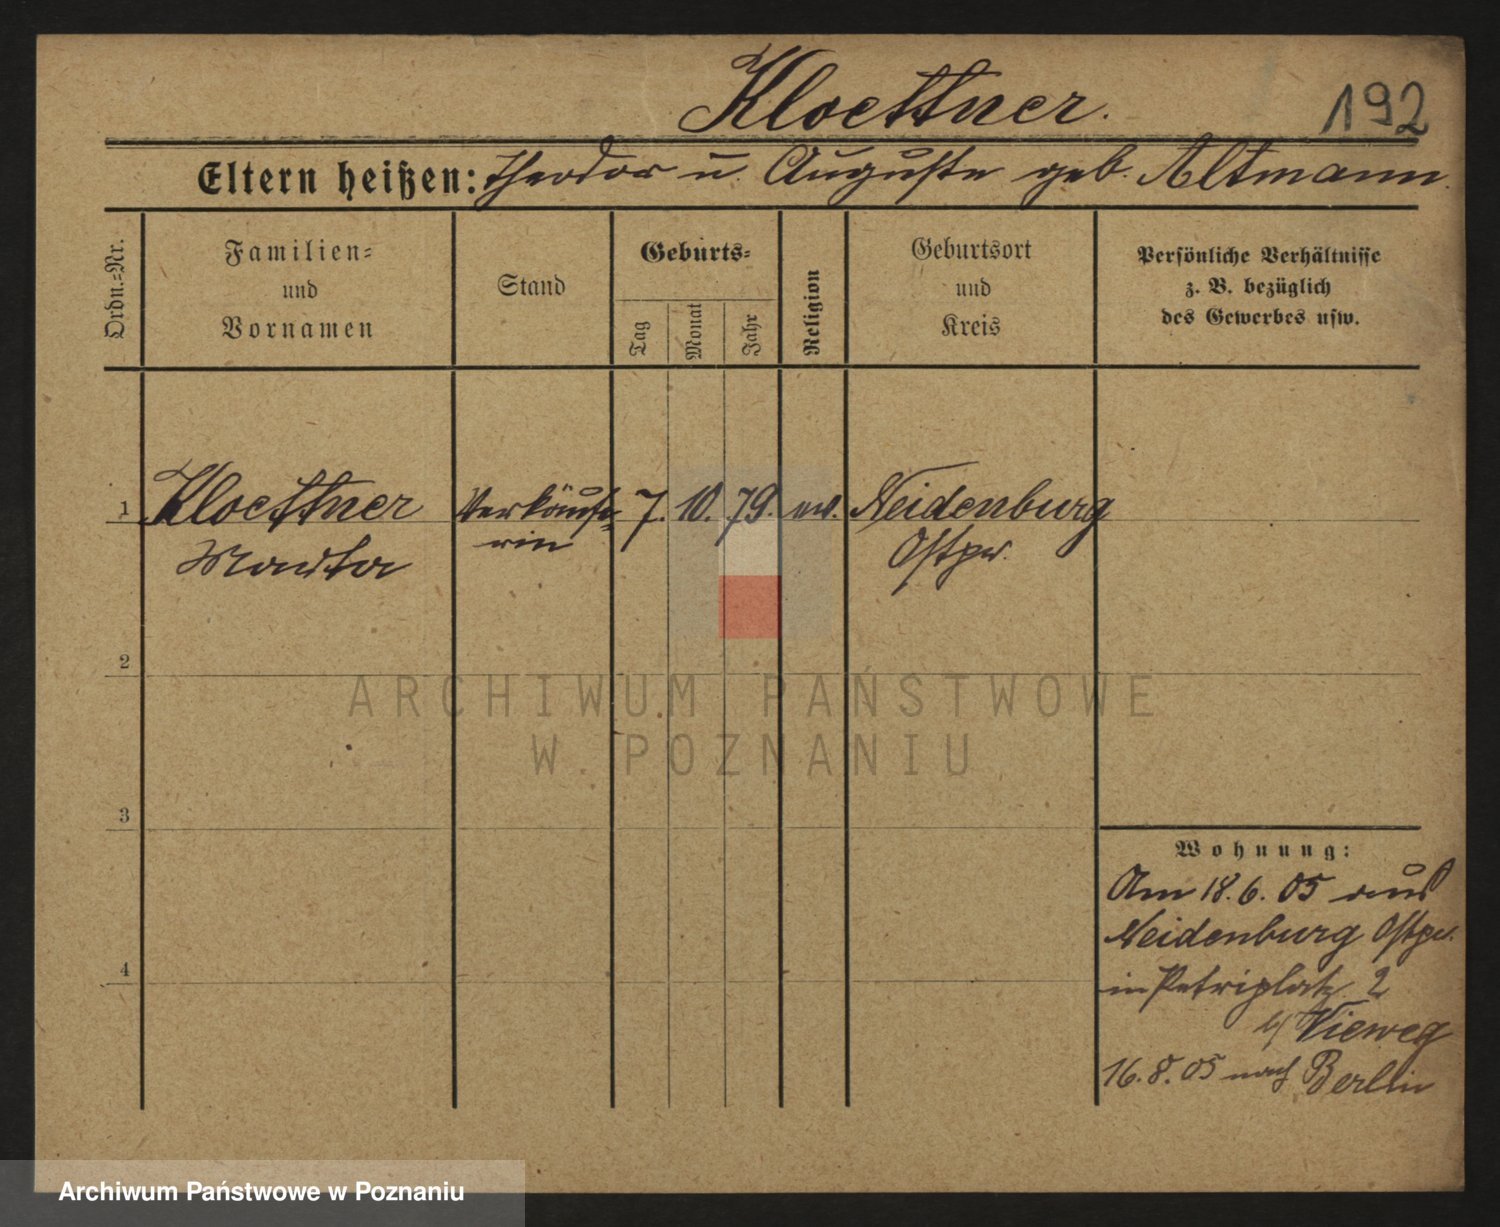 Kloettner.
192
Eltern heißen: Theodor u Auguste geb. Altmann.
Ordn.=Nr.
Familien=
und
Vornamen
Stand
Geburts=
Tag
Monat
Jahr
Religion
Geburtsort
und
Kreis
Persönliche Verhältnisse
z. B. bezüglich
des Gewerbes usw.
1 Kloettner Verkäufe= 7. 10. 79. ev. Neidenburg
Martha rin Ostpr.
2
ARCHIWUM PAŃSTWOWE
W POZNANIU
3
Wohnung:
Am 18.6.05 aus
Neidenburg Ostpr.
in Petriplatz 2
b/ Vieweg
16.8.05 nach Berlin
4
Archiwum Państwowe w Poznaniu